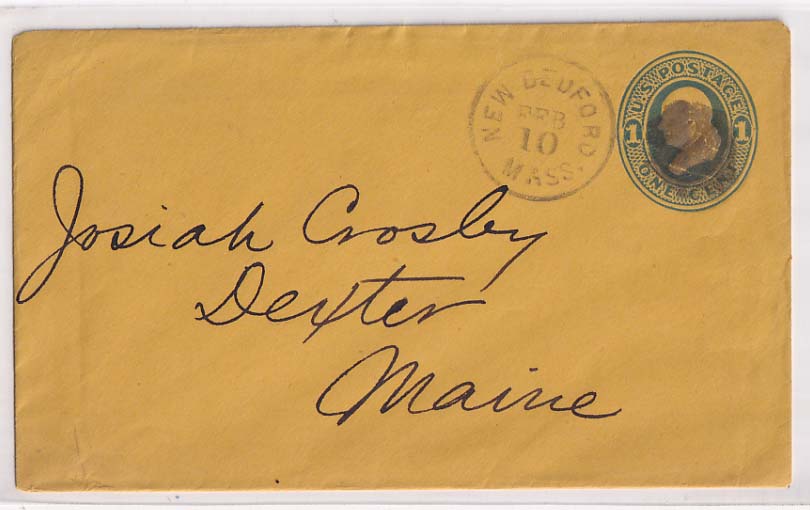 U.S. POSTAGE
1 1
ONE CENT
NEW BEDFORD
FEB
10
MASS.
Josiah Crosby
Dexter
Maine